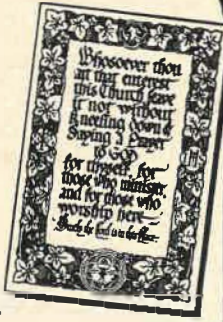 Whosoever thou
art that enterest
this Church leave
it not without
Kneeling down &
Saying a Prayer
to GOD
for thyself for
those who minister
and for those who
worship here
Surely the Lord is in this place.